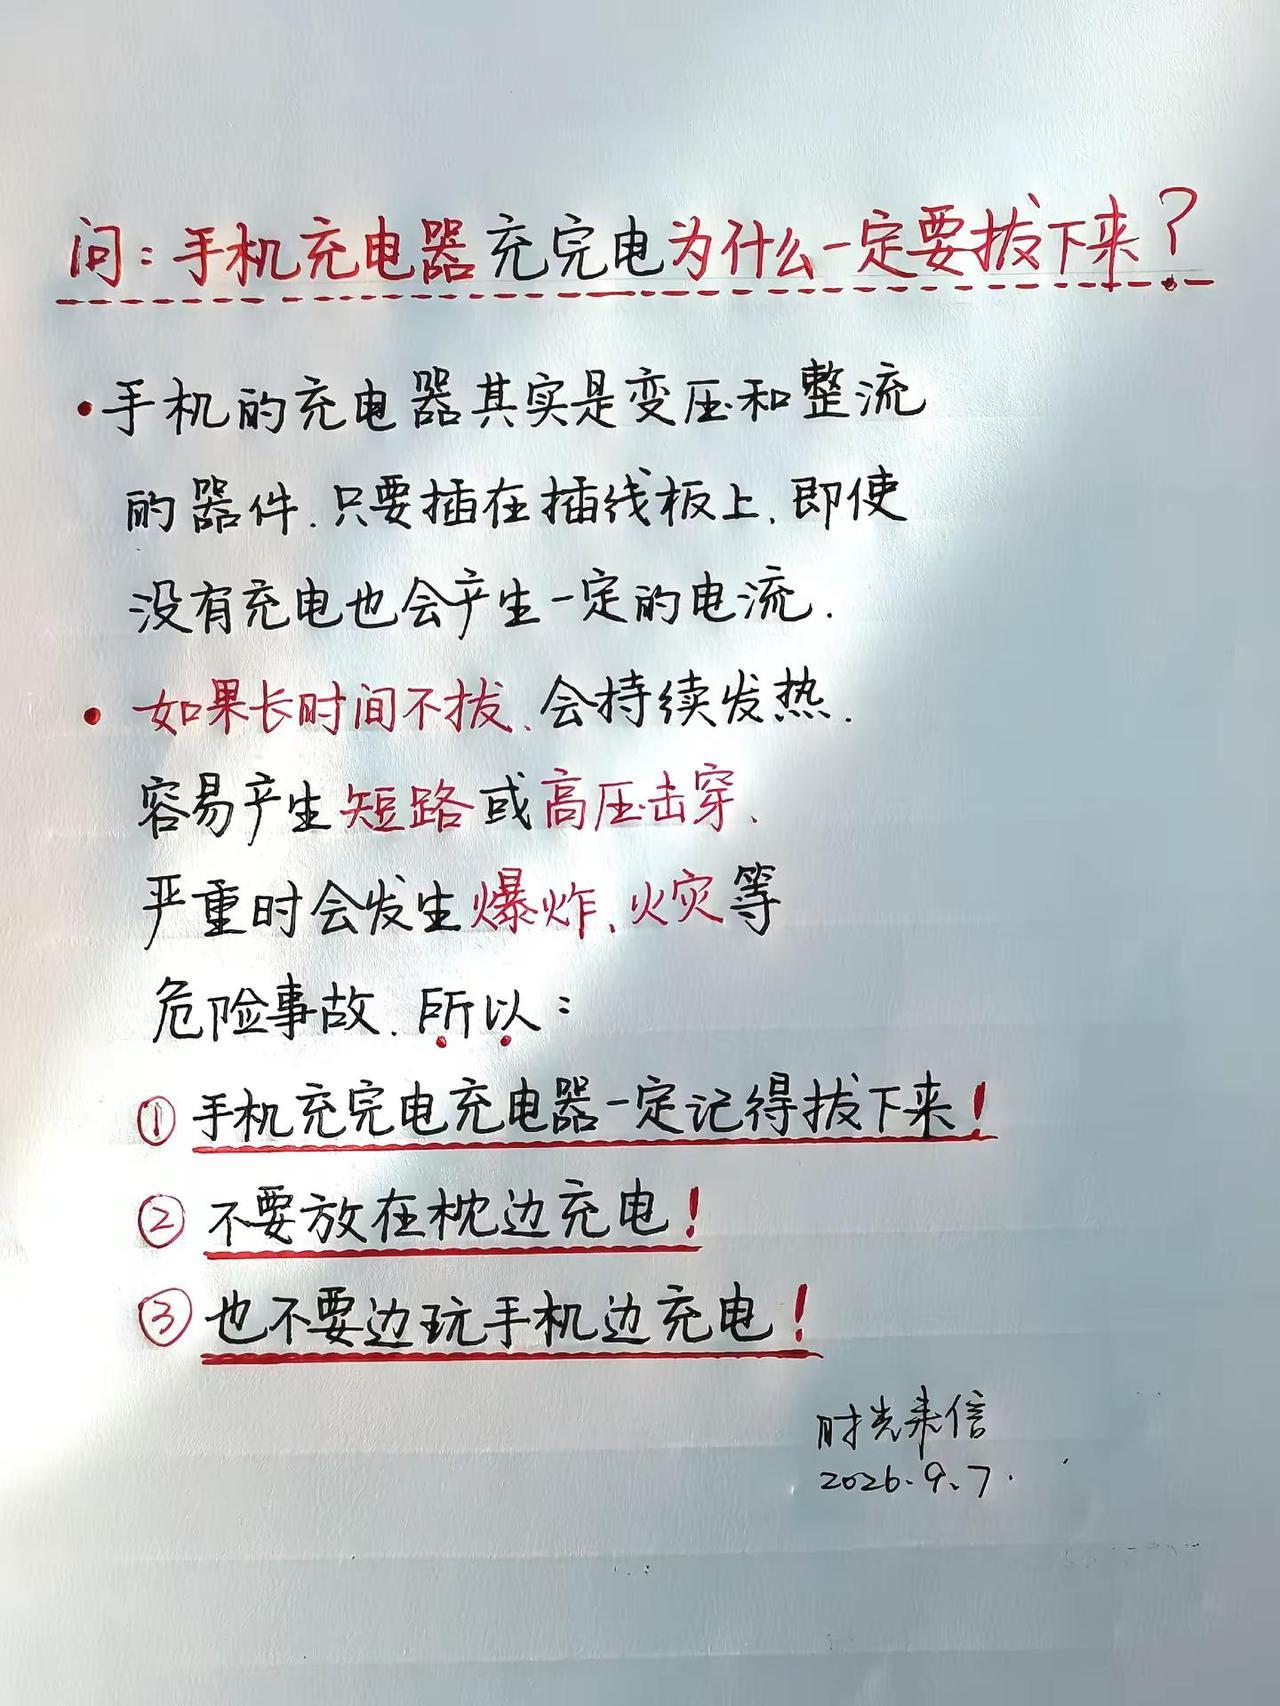 问：手机充电器充完电为什么一定要拔下来？
·手机的充电器其实是变压和整流
的器件.只要插在插线板上、即使
没有充电也会产生一定的电流.
·如果长时间不拔、会持续发热.
容易产生短路或高压击穿、
严重时会发生爆炸、火灾等
危险事故.所以：
①手机充完电充电器一定记得拔下来！
②不要放在枕边充电！
③也不要边玩手机边充电！
时光来信
2026.9.7.